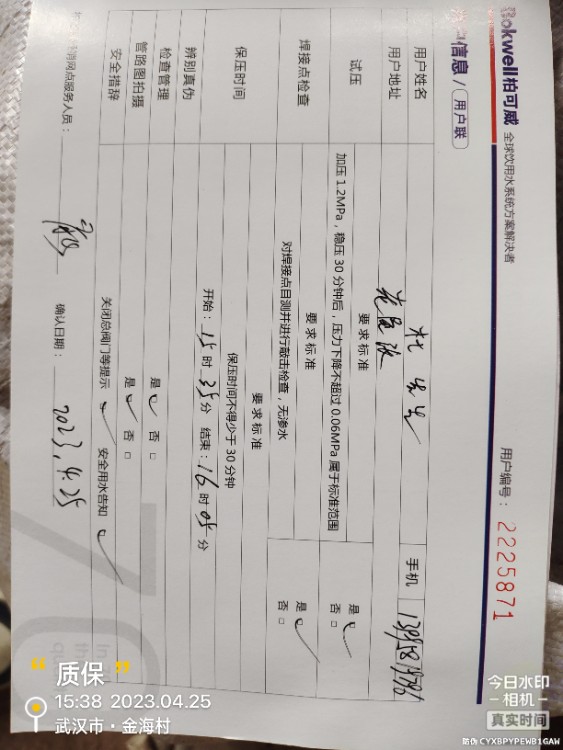 Rokwell柏可威 全球饮用水系统方案解决者
用户编号： 2225871
信息 / 用户联
用户姓名 杜先生 手机
用户地址
试压 要求标准
加压 1.2MPa，稳压 30 分钟后，压力下降不超过 0.06MPa 属于标准范围 是 否 □
焊接点检查 要求标准
对焊接点目测并进行敲击检查，无渗水 是 否 □
保压时间 要求标准
保压时间不得少于 30 分钟
开始：15 时 35 分 结束：16 时 05 分
辨别真伪
检查管理 是 否 □
管路图拍摄 是 否 □
安全措辞 关闭总阀门等提示 安全用水告知
网点服务人员： 确认日期： 2023.4.25
“ 质保 ”
15:38 2023.04.25
武汉市·金海村
今日水印
相机
真实时间
防伪 CYXBPYPEWB1GAW